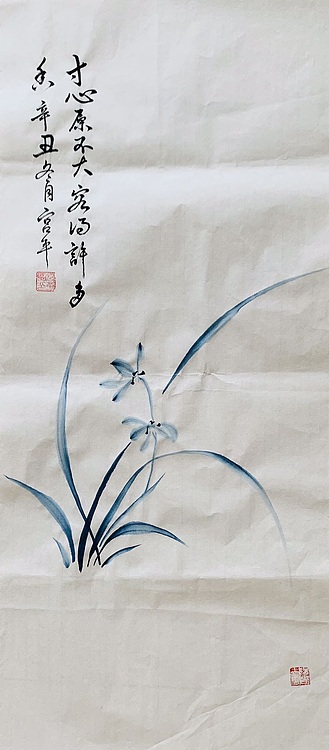 寸心原不大容得许多
香辛丑冬月宫平